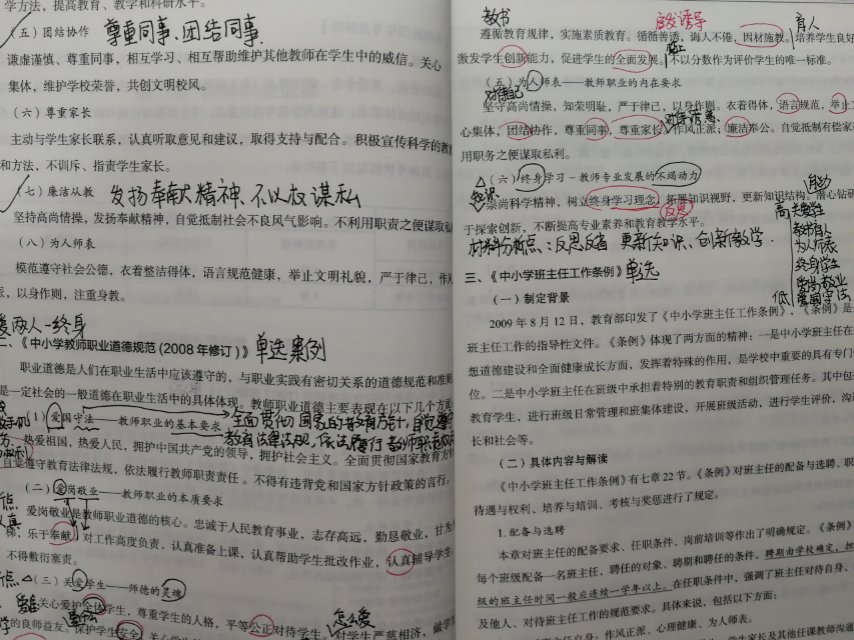 学方法，提高教育、教学和科研水平。
(五)团结协作 尊重同事、团结同事
谦虚谨慎、尊重同事，相互学习、相互帮助维护其他教师在学生中的威信。关心
集体，维护学校荣誉，共创文明校风。
(六)尊重家长
主动与学生家长联系，认真听取意见和建议，取得支持与配合。积极宣传科学的教
和方法，不训斥、指责学生家长。
(七)廉洁从教 发扬奉献精神、不以权谋私
坚持高尚情操，发扬奉献精神，自觉抵制社会不良风气影响。不利用职责之便谋取私
(八)为人师表
模范遵守社会公德，衣着整洁得体，语言规范健康，举止文明礼貌，严于律己，作风
，以身作则，注重身教。
爱两人一终身
二、《中小学教师职业道德规范(2008年修订)》 单选案例
职业道德是人们在职业生活中应该遵守的，与职业实践有密切关系的道德规范和准则
是一定社会的一般道德在职业生活中的具体体现。教师职业道德主要表现在以下几个方
(一)爱国守法——教师职业的基本要求 全面贯彻国家的教育方针，自觉遵守
教育法律法规，依法履行教师职责
热爱祖国，热爱人民，拥护中国共产党的领导，拥护社会主义。全面贯彻国家教育方针
自觉遵守教育法律法规，依法履行教师职责责任。不得有违背党和国家方针政策的言行。
(二)爱岗敬业——教师职业的本质要求
爱岗敬业是教师职业道德的核心。忠诚于人民教育事业，志存高远，勤恳敬业，甘为人
梯，乐于奉献。对工作高度负责，认真准备上课，认真帮助学生批改作业，认真辅导学生
不得敷衍塞责。
(三)关爱学生——师德的灵魂
关心爱护全体学生，尊重学生的人格，平等公正对待学生。对学生严慈相济，做学
的良师益友。保护学生安全，关心学生
怎么爱
教书 启发诱导 育人
遵循教育规律，实施素质教育。循循善诱，诲人不倦，因材施教。培养学生良好
激发学生创新能力，促进学生的全面发展。不以分数作为评价学生的唯一标准。
(五)为人师表——教师职业的内在要求
对自己
坚守高尚情操，知荣明耻，严于律己，以身作则。衣着得体，语言规范，举止
心集体，团结协作，尊重同事，尊重家长。作风正派，廉洁奉公。自觉抵制有偿家
用职务之便谋取私利。
(六)终身学习－教师专业发展的不竭动力
崇尚科学精神，树立终身学习理念，拓展知识视野，更新知识结构。潜心钻研
反思
于探索创新，不断提高专业素养和教育教学水平。
材料分析点：反思反省 更新知识、创新教学．
高 关爱学生
教书育人
为人师表
终身学生
爱岗敬业
低 爱国守法
三、《中小学班主任工作条例》 单选
(一)制定背景
2009年8月12日，教育部印发了《中小学班主任工作条例》，《条例》是
班主任工作的指导性文件。《条例》体现了两方面的精神：一是中小学班主任在
想道德建设和全面健康成长方面，发挥着特殊的作用，是学校中重要的具有专门
位。二是中小学班主任在班级中承担着特别的教育职责和组织管理任务。其中包
教育学生，进行班级日常管理和班集体建设，开展班级活动，进行学生评价，沟通
长和社会等。
(二)具体内容与解读
《中小学班主任工作条例》有七章22节。《条例》对班主任的配备与选聘、职
待遇与权利、培养与培训、考核与奖惩进行了规定。
1.配备与选聘
本章对班主任的配备要求、任职条件、岗前培训等作出了明确规定。《条例》
每个班级配备一名班主任，聘任的对象、聘期和聘任的条件。聘期由学校确定，担
级的班主任时间一般应连续一学年以上。在任职条件中，强调了班主任对待自身、
及他人、对待班主任工作的规范要求。具体来说，包括以下方面：
自身，作风正派，心理健康、为人师表。